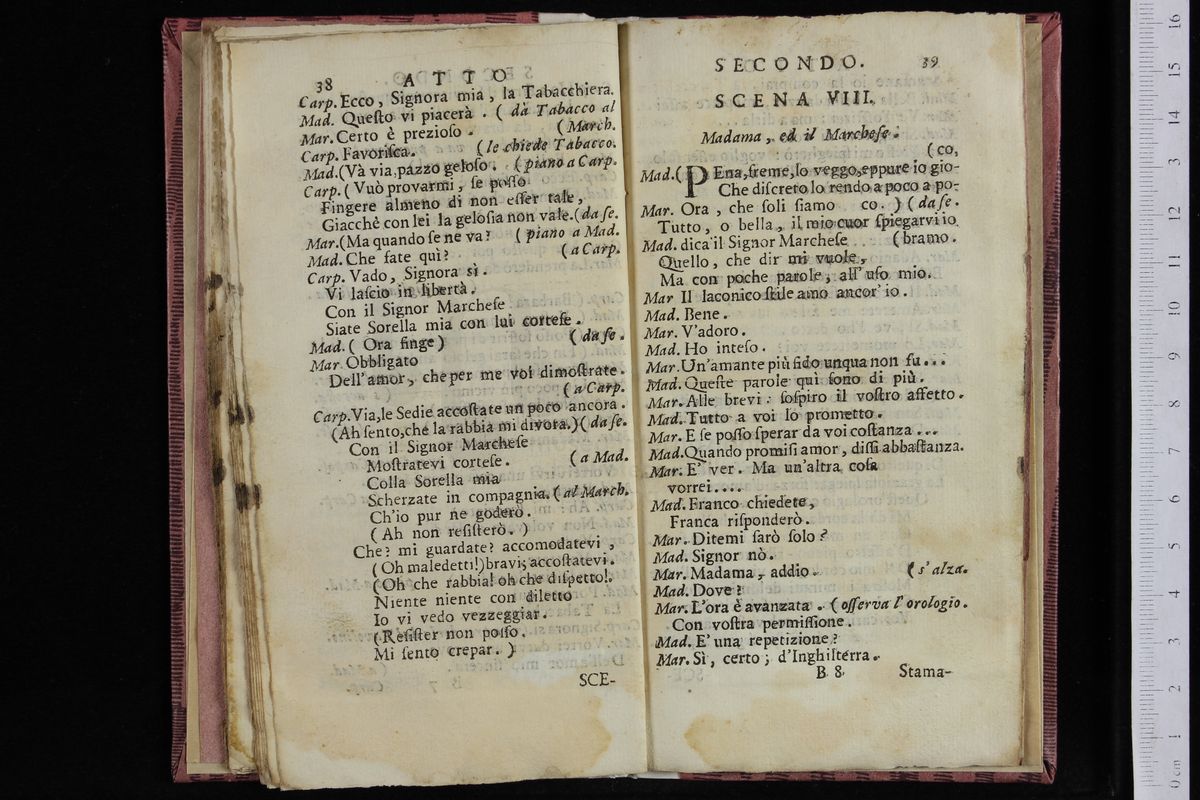 38 ATTO
Carp. Ecco, Signora mia, la Tabacchiera.
Mad. Queſto vi piacerà. ( dà Tabacco al
Mar. Certo è prezioſo. ( March.
Carp. Favoriſca. ( le chiede Tabacco.
Mad. (Và via, pazzo geloſo. ( piano a Carp.
Carp. ( Vuò provarmi, ſe poſſo
Fingere almeno di non eſſer tale,
Giacchè con lei la geloſia non vale. ( da ſe.
Mar. (Ma quando ſe ne va? ( piano a Mad.
Mad. Che fate quì? ( a Carp.
Carp. Vado, Signora sì.
Vi laſcio in libertà.
Con il Signor Marcheſe
Siate Sorella mia con lui corteſe.
Mad. ( Ora finge) ( da ſe.
Mar. Obbligato
Dell'amor, che per me voi dimoſtrate.
( a Carp.
Carp. Via, le Sedie accoſtate un poco ancora.
(Ah ſento, che la rabbia mi divora.) ( da ſe.
Con il Signor Marcheſe
Moſtratevi corteſe. ( a Mad.
Colla Sorella mia
Scherzate in compagnia. ( al March.
Ch'io pur ne goderò.
( Ah non reſiſterò. )
Che? mi guardate? accomodatevi,
( Oh maledetti!) bravi; accoſtatevi.
(Oh che rabbia! oh che diſpetto!.
Niente niente con diletto
Io vi vedo vezzeggiar.
( Reſiſter non poſſo.
Mi ſento crepar. )
SCE-
SECONDO. 39
SCENA VIII.
Madama, ed il Marcheſe.
( co,
Mad. ( PEna, freme, lo veggo, eppure io gio-
Che diſcreto lo rendo a poco a po-
Mar. Ora, che ſoli ſiamo co. ) ( da ſe.
Tutto, o bella, il mio cuor ſpiegarvi io
Mad. dica il Signor Marcheſe ( bramo.
Quello, che dir mi vuole,
Ma con poche parole, all' uſo mio.
Mar Il laconico ſtile amo ancor' io.
Mad. Bene.
Mar. V'adoro.
Mad. Ho inteſo.
Mar. Un'amante più fido unqua non fu...
Mad. Queſte parole qui ſono di più.
Mar. Alle brevi: ſoſpiro il voſtro affetto.
Mad. Tutto a voi lo prometto.
Mar. E ſe poſſo ſperar da voi coſtanza ...
Mad. Quando promiſi amor, diſſi abbaſtanza.
Mar. E' ver. Ma un'altra coſa
vorrei....
Mad. Franco chiedete,
Franca riſponderò.
Mar. Ditemi ſarò ſolo?
Mad. Signor nò.
Mar. Madama, addio. ( s' alza.
Mad. Dove?
Mar. L'ora è avanzata. ( oſſerva l' orologio.
Con voſtra permiſſione.
Mad. E' una repetizione?
Mar. Sì, certo; d'Inghilterra.
B 8 Stama-
0 cm 1 2 3 4 5 6 7 8 9 10 11 12 13 14 15 16